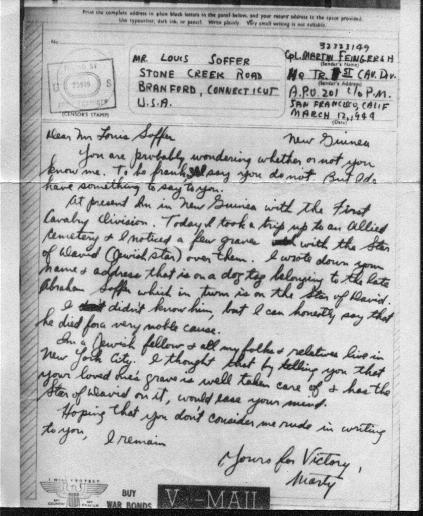 Print the complete address in plain block letters in the panel below, and your return address in the space provided.
Use typewriter, dark ink, or pencil. Write plainly. Very small writing is not suitable.
No.
(CENSOR'S STAMP)
MR. LOUIS SOFFER
STONE CREEK ROAD
BRANFORD, CONNECTICUT
U.S.A.
32323149
CPL. MARTIN FEINGERSH
(Sender's Name)
HQ TR. 1ST CAV. DIV.
(Sender's Address)
A.P.O. 201 c/o P.M.
SAN FRANCISCO, CALIF
MARCH 12, 1944
(Date)
Dear Mr Louis Soffer
New Guinea
You are probably wondering whether or not you
know me. To be frank I'll say you do not. But I do
have something to say to you.
At present Im in New Guinea with the First
Cavalry Division. Today I took a trip up to an Allied
cemetery & I noticed a few graves with the Star
of David (Jewish Star) over them. I wrote down your
name & address that is on a dog tag belonging to the late
Abraham Soffer which in turn is on the Star of David.
I didn't know him, but I can honestly say that
he died for a very noble cause.
Im a Jewish fellow & all my folks & relatives live in
New York City. I thought that by telling you that
your loved one's grave is well taken care of & has the
Star of David on it, would ease your mind.
Hoping that you don't consider me rude in writing
to you, I remain
Yours for Victory,
Marty
BUY
WAR BONDS
V···-MAIL